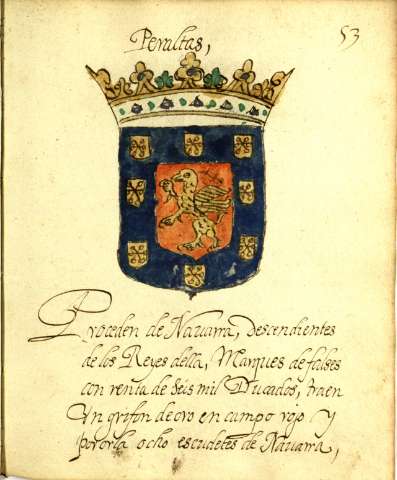 Peraltas,
53
Proceden de Nauarra, Descendientes
de los Reyes della, Marques de falses
con renta de Seis mil Ducados, traen
Un grifon de oro en campo rojo Y
por orla ocho escudetes de Nauarra,